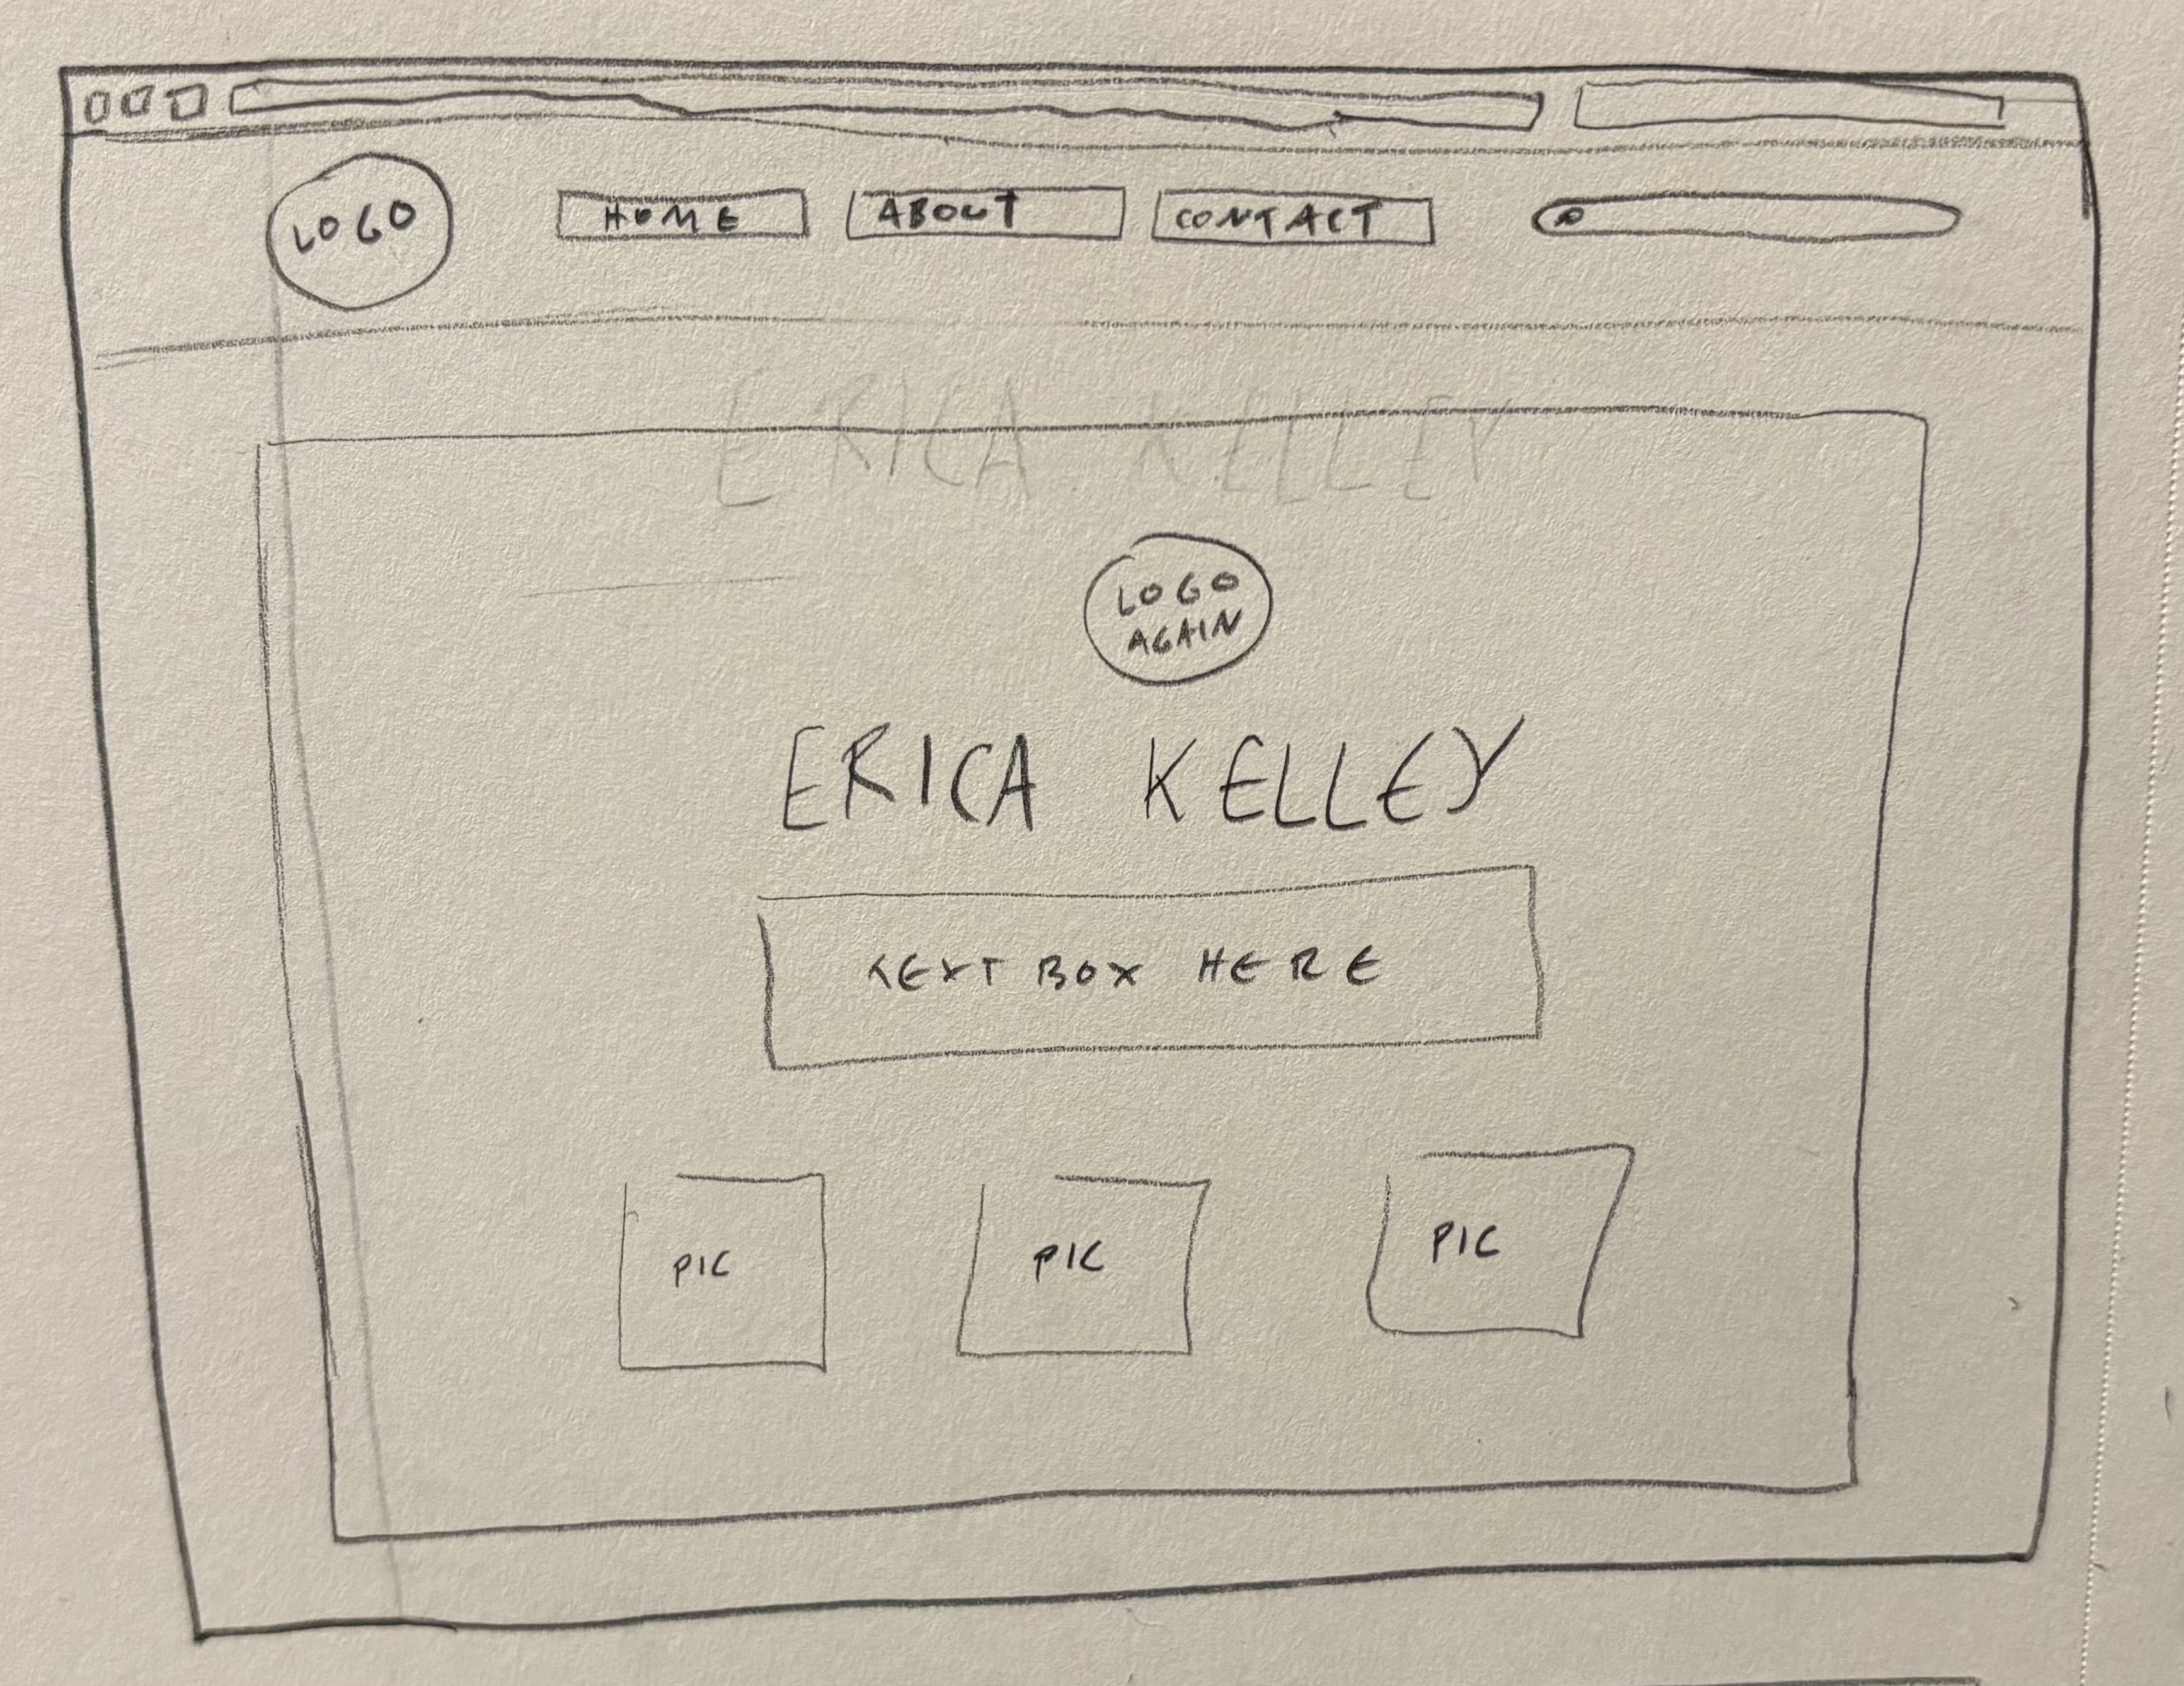 LOGO
HOME
ABOUT
CONTACT
ERICA KELLEY
LOGO
AGAIN
ERICA KELLEY
TEXT BOX HERE
PIC
PIC
PIC